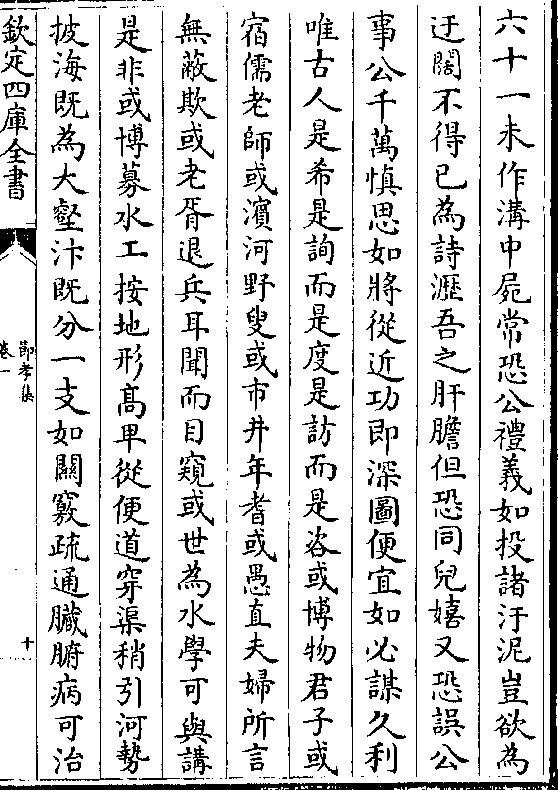 六十一未作溝中屍常恐公禮義如投諸汙泥豈欲為
迂闊不得已為詩瀝吾之肝膽但恐同兒嬉又恐誤公
事公千萬慎思如將從近功即深圖便宜如必謀久利
唯古人是希是詢而是度是訪而是咨或博物君子或
宿儒老師或濱河野叟或市井年耆或愚直夫婦所言
無蔽欺或老胥退兵耳聞而目窺或世為水學可與講
是非或博募水工按地形髙卑從便道穿渠稍引河勢
披海既為大壑汴既分一支如關竅疏通臟腑病可治
欽定四庫全書
節孝集
卷一
十